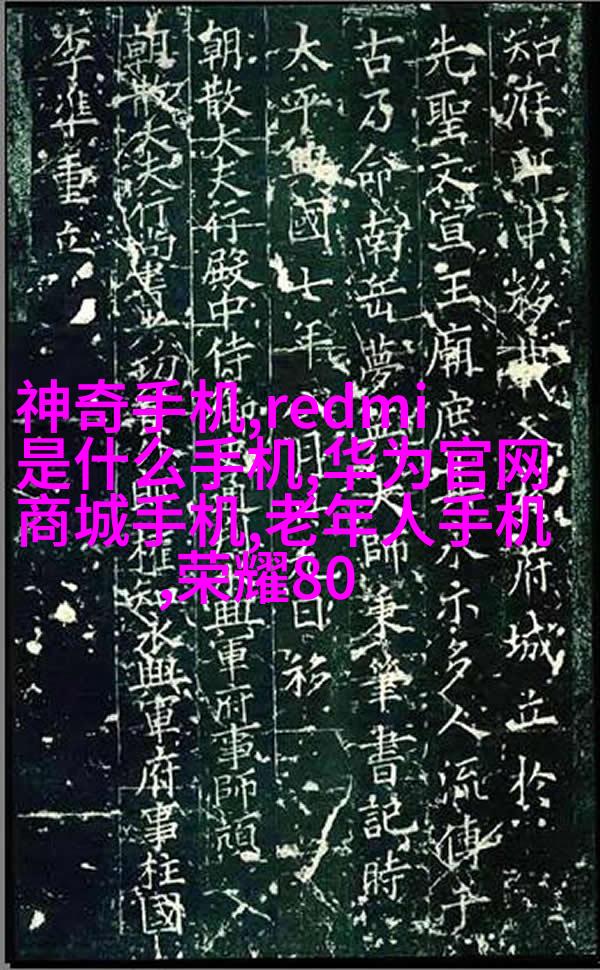 神奇手机,redmi
是什么手机,华为官网
商城手机,老年人手机
,荣耀80
知府申移府城立於
先聖文宣王廟庶示多人流傳千
古乃命南岳夢英大師秉筆書記時
太平興國七年月日移
朝散大夫行殿中侍興軍府事師頏
朝散大夫行尚書權知永興軍府事柱國
李準重立